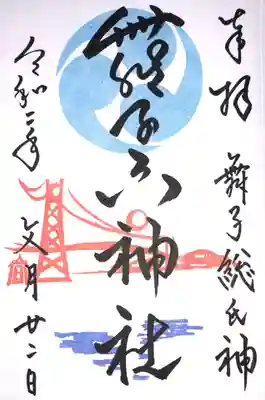 奉拝
舞子総氏神
舞子六神社
令和二年
文月廿二日